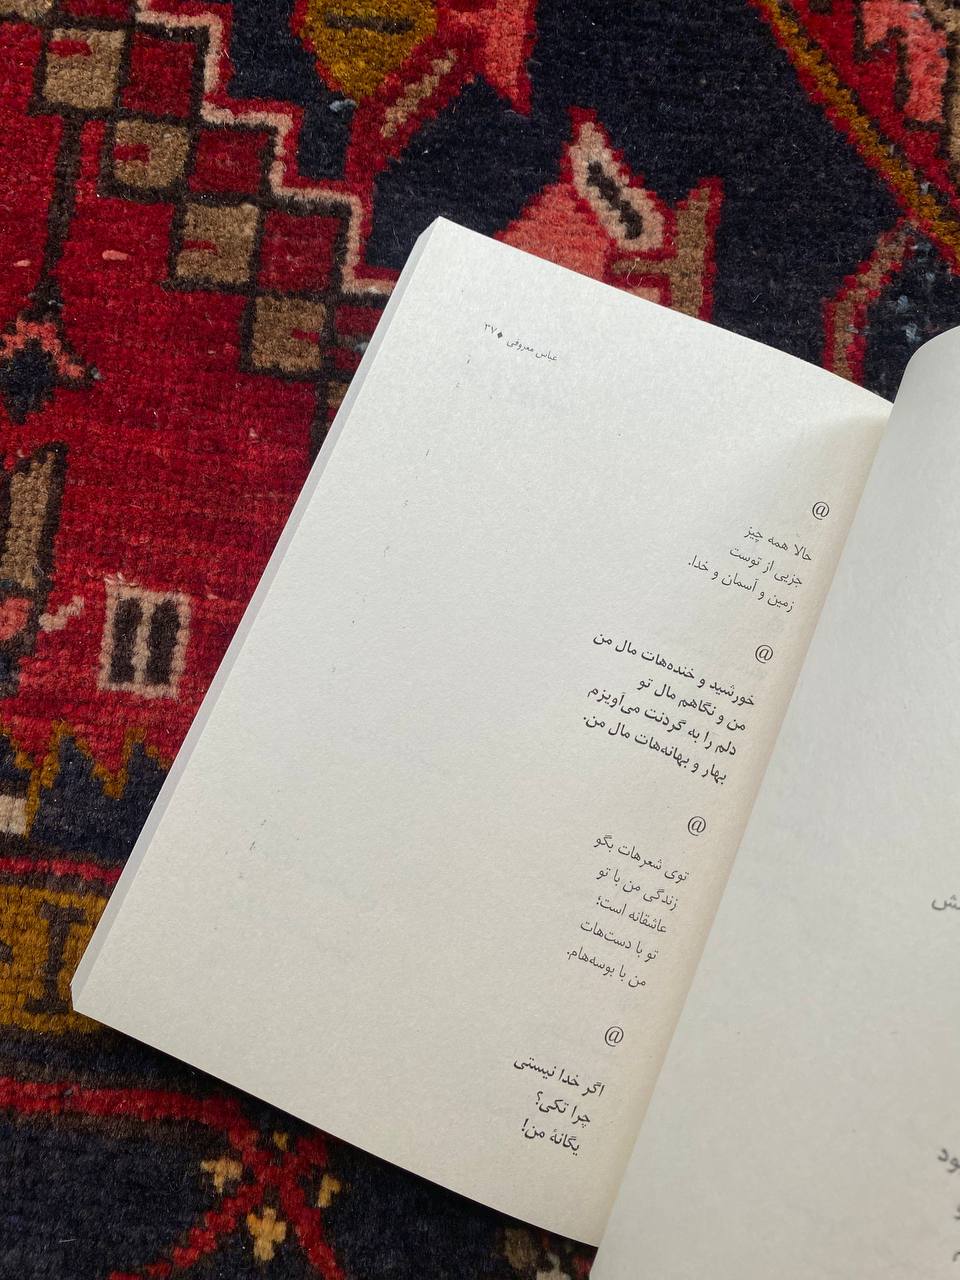 عباس معروفی ◆ ۳۷
@
حالا همه چیز
جزیی از توست
زمین و آسمان و خدا.
@
خورشید و خنده‌هات مال من
من و نگاهم مال تو
دلم را به گردنت می‌آویزم
بهار و بهانه‌هات مال من.
@
توی شعرهات بگو
زندگی من با تو
عاشقانه است؛
تو با دست‌هات
من با بوسه‌هام.
@
اگر خدا نیستی
چرا تکی؟
یگانهٔ من!